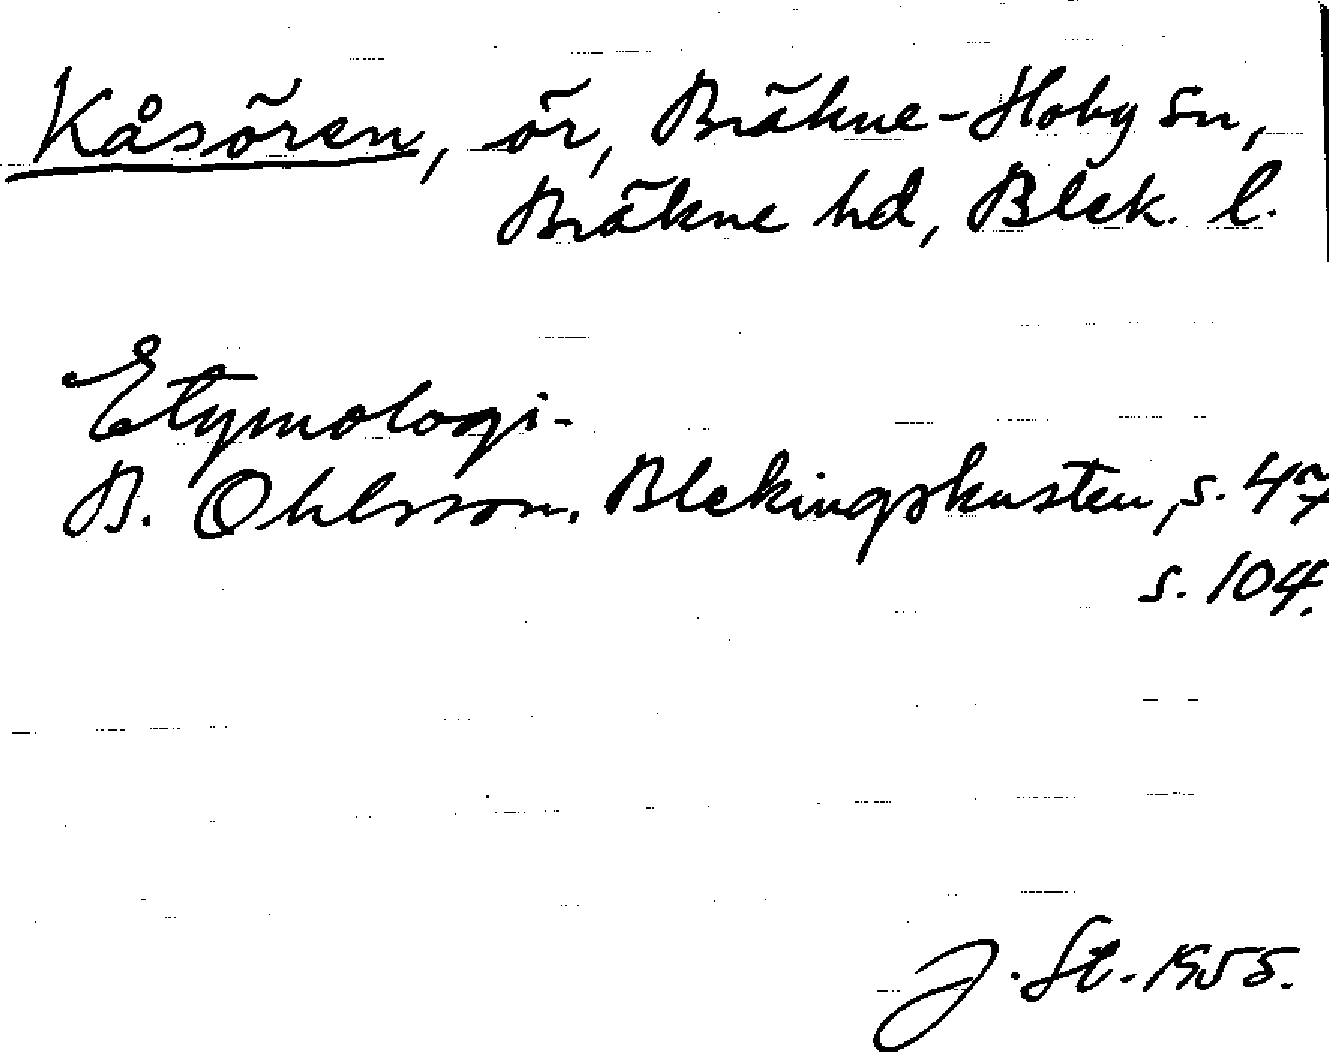 Kåsören, ör, Bräkne-Hoby sn,
Bräkne hd, Blek. l.
Etymologi.
B. Ohlsson. Blekingskusten, s. 47
s. 104.
J. St. 1955.